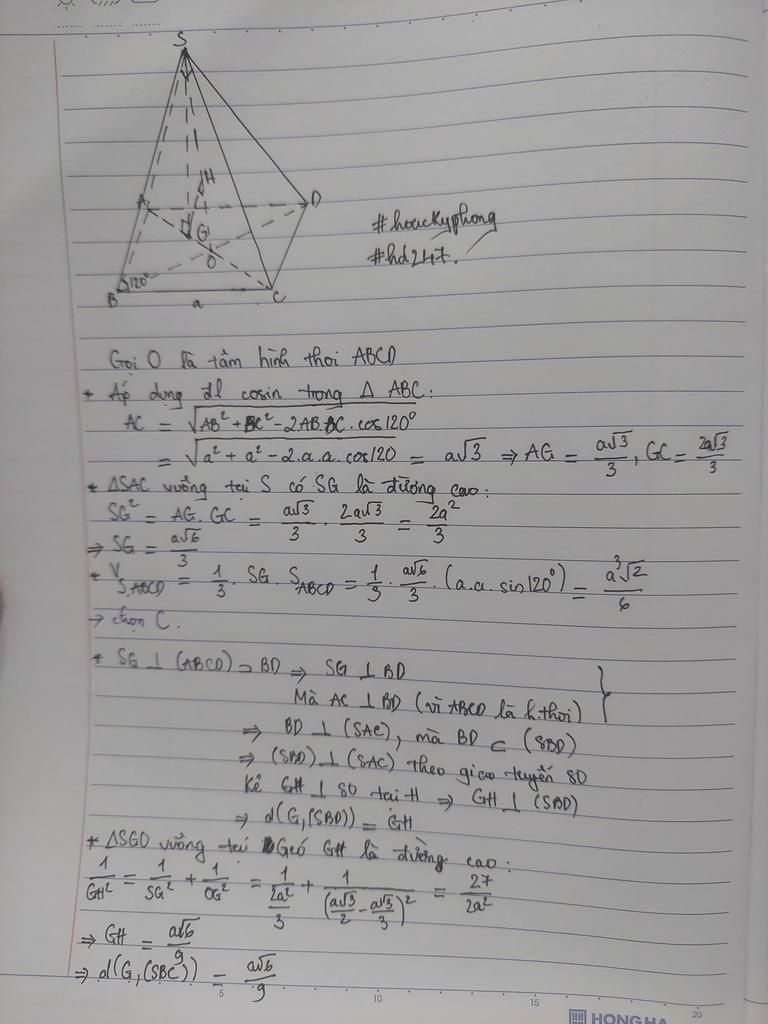 S
H
A
D
G
O
B
120°
C
a
#houckyphong
#hd247.
Gọi O là tâm hình thoi ABCD
* Áp dụng đl cosin trong Δ ABC:
AC = √(AB² + BC² - 2.AB.BC.cos120°)
= √(a² + a² - 2.a.a.cos120) = a√3 ⇒ AG = a√3/3, GC = 2a√3/3
* ΔSAC vuông tại S có SG là đường cao:
SG² = AG.GC = a√3/3 . 2a√3/3 = 2a²/3
⇒ SG = a√6/3
* V S.ABCD = 1/3 . SG . S ABCD = 1/3 . a√6/3 . (a.a.sin120°) = a³√2/6
→ chọn C.
* SG ⊥ (ABCD) ⊃ BD ⇒ SG ⊥ BD
Mà AC ⊥ BD (vì ABCD là h.thoi) }
⇒ BD ⊥ (SAC), mà BD ⊂ (SBD)
⇒ (SBD) ⊥ (SAC) theo giao tuyến SO
Kẻ GH ⊥ SO tại H ⇒ GH ⊥ (SBD)
⇒ d(G,(SBD)) = GH
* ΔSGO vuông tại G có GH là đường cao:
1/GH² = 1/SG² + 1/OG² = 1/(2a²/3) + 1/(a√3/2 - a√3/3)² = 27/2a²
⇒ GH = a√6/9
⇒ d(G,(SBC)) = a√6/9
5 10 15 20
HH HONG HA